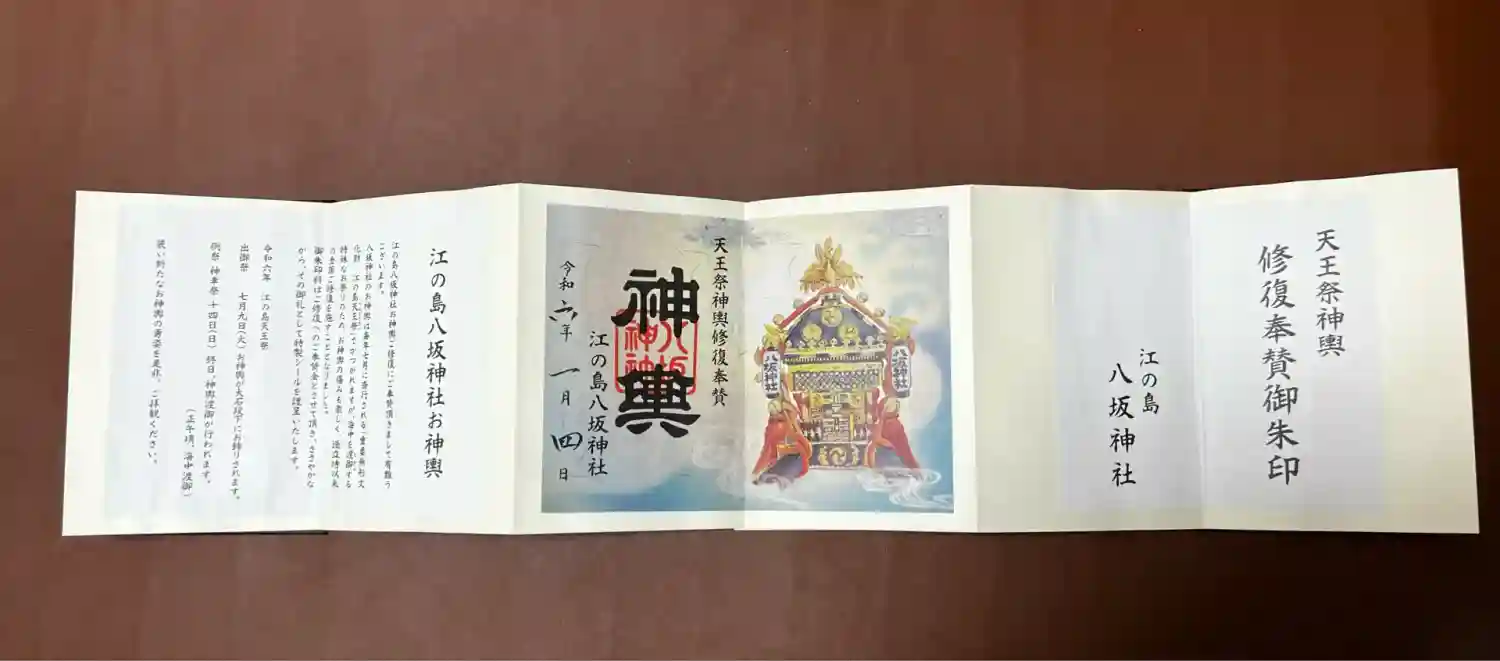 天王祭神輿
修復奉賛御朱印
江の島
八坂神社
八坂神社
八坂神社
天王祭神輿修復奉賛
神輿
八坂
神社
江の島八坂神社
令和六年一月四日
江の島八坂神社お神輿
江の島八坂神社お神輿ご修復にご奉賛頂きまして有難う
ございます。
八坂神社のお神輿は毎年七月に斎行される「重要無形文
化財 江の島天王祭」でかつがれますが、海中を渡御する
特殊なお祭りのため、お神輿の傷みも激しく、
御朱印料はご修復へのご奉賛金とさせて頂き、ささやかな
がら、その御礼として特製シールを謹呈いたします。
令和六年 江の島天王祭
出御祭 七月九日(火) お神輿が大石段下にお飾りされます。
例祭 神幸祭 十四日(日) 終日、神輿渡御が行われます。
(正午頃、海中渡御)
装い新たなお神輿の勇姿を是非、ご拝観ください。